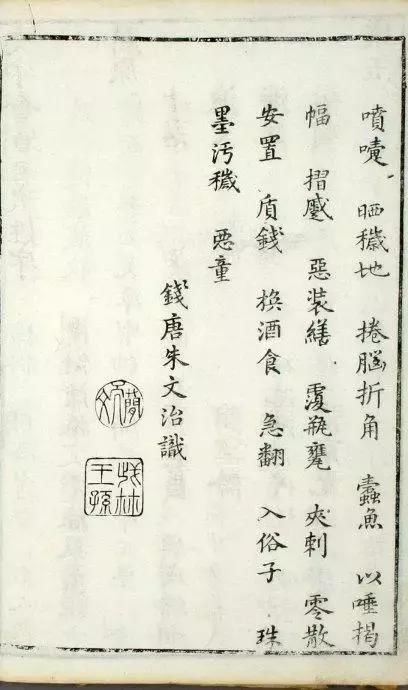 噴嚏 晒穢地 捲腦折角 蠹魚 以唾揭
幅 摺蹙 惡裝繕 覆瓶甕 夾刺 零散
安置 質錢 換酒食 急翻 入俗子 珠
墨汚穢 惡童
錢唐朱文治識